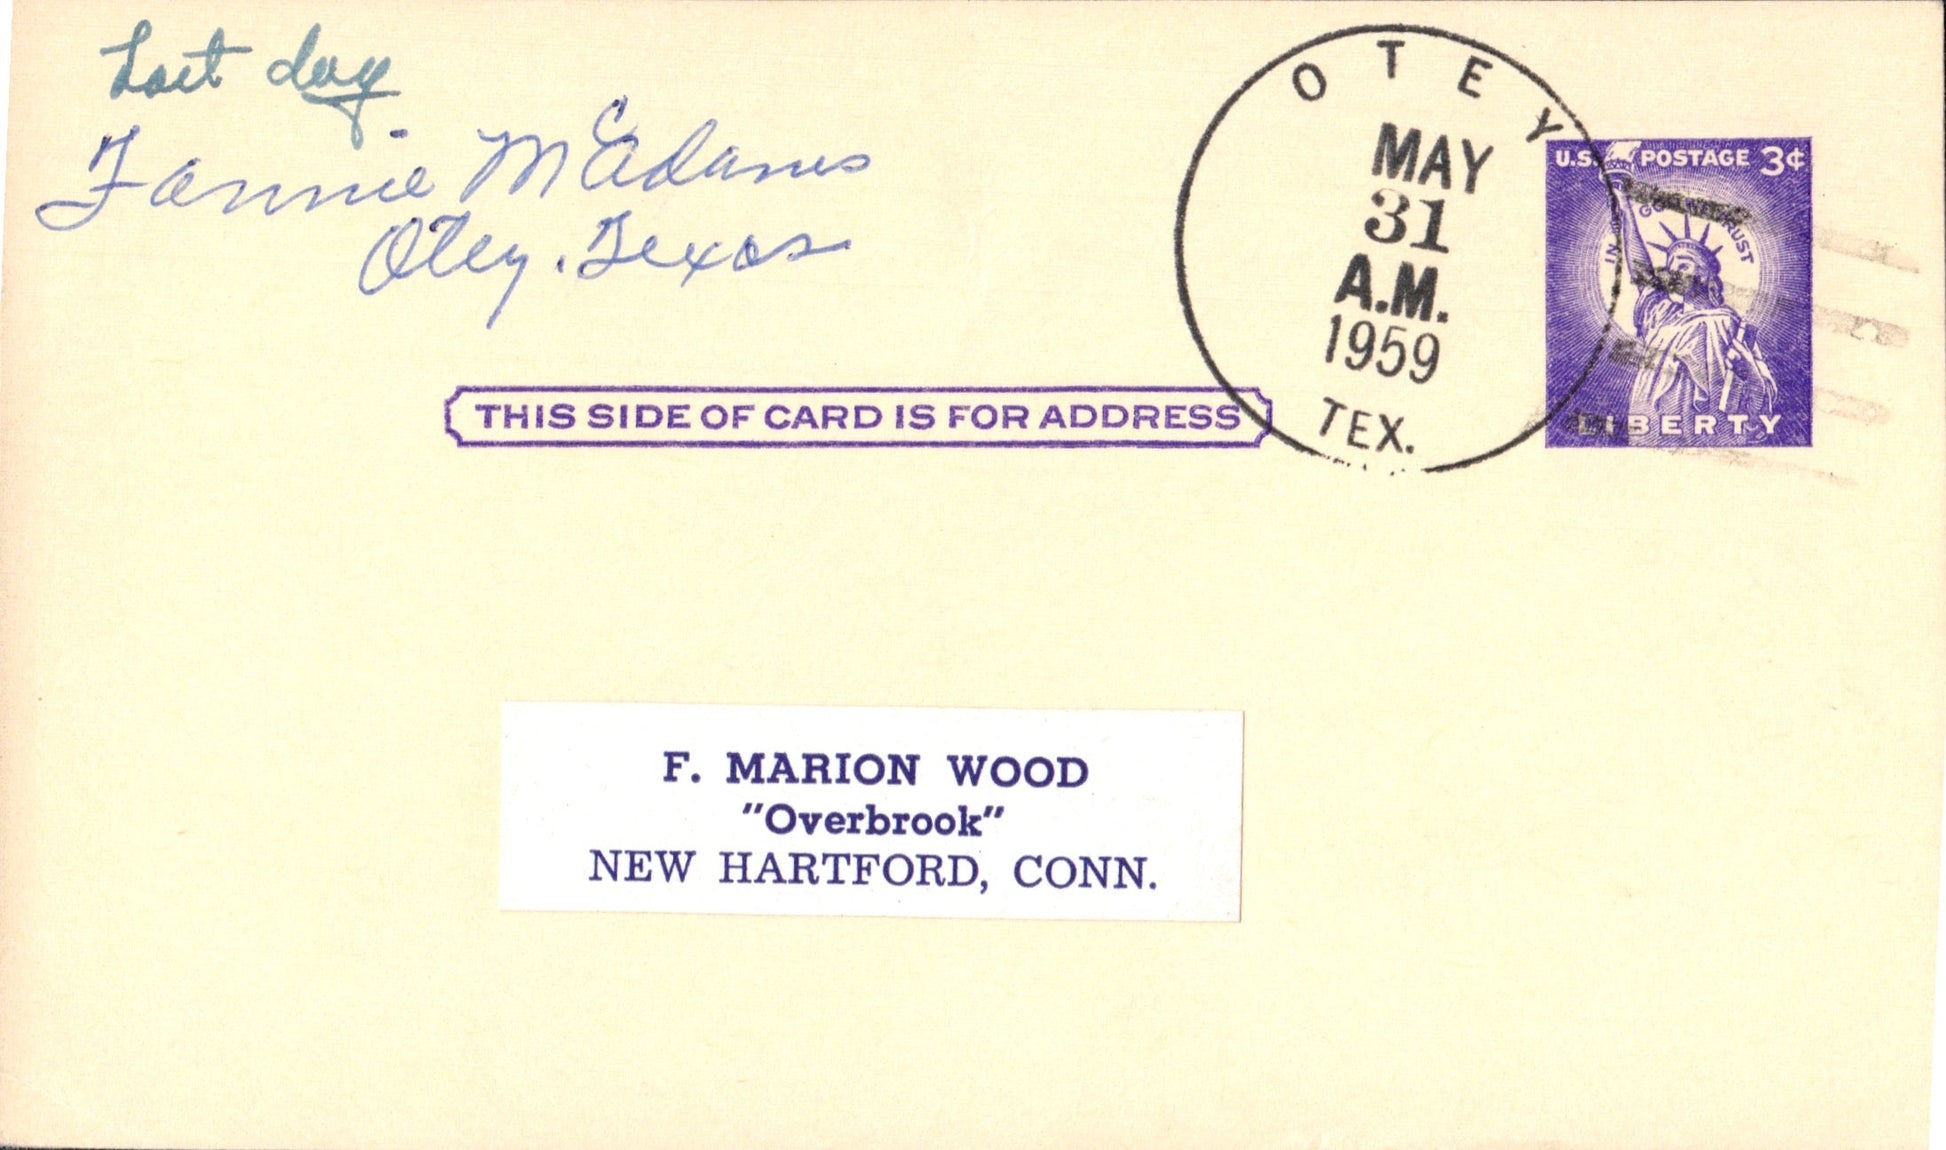 Last day
Fannie McAdams
Otey, Texas
OTEY
MAY
31
A.M.
1959
TEX.
U.S. POSTAGE 3¢
IN GOD WE TRUST
LIBERTY
THIS SIDE OF CARD IS FOR ADDRESS
F. MARION WOOD
"Overbrook"
NEW HARTFORD, CONN.